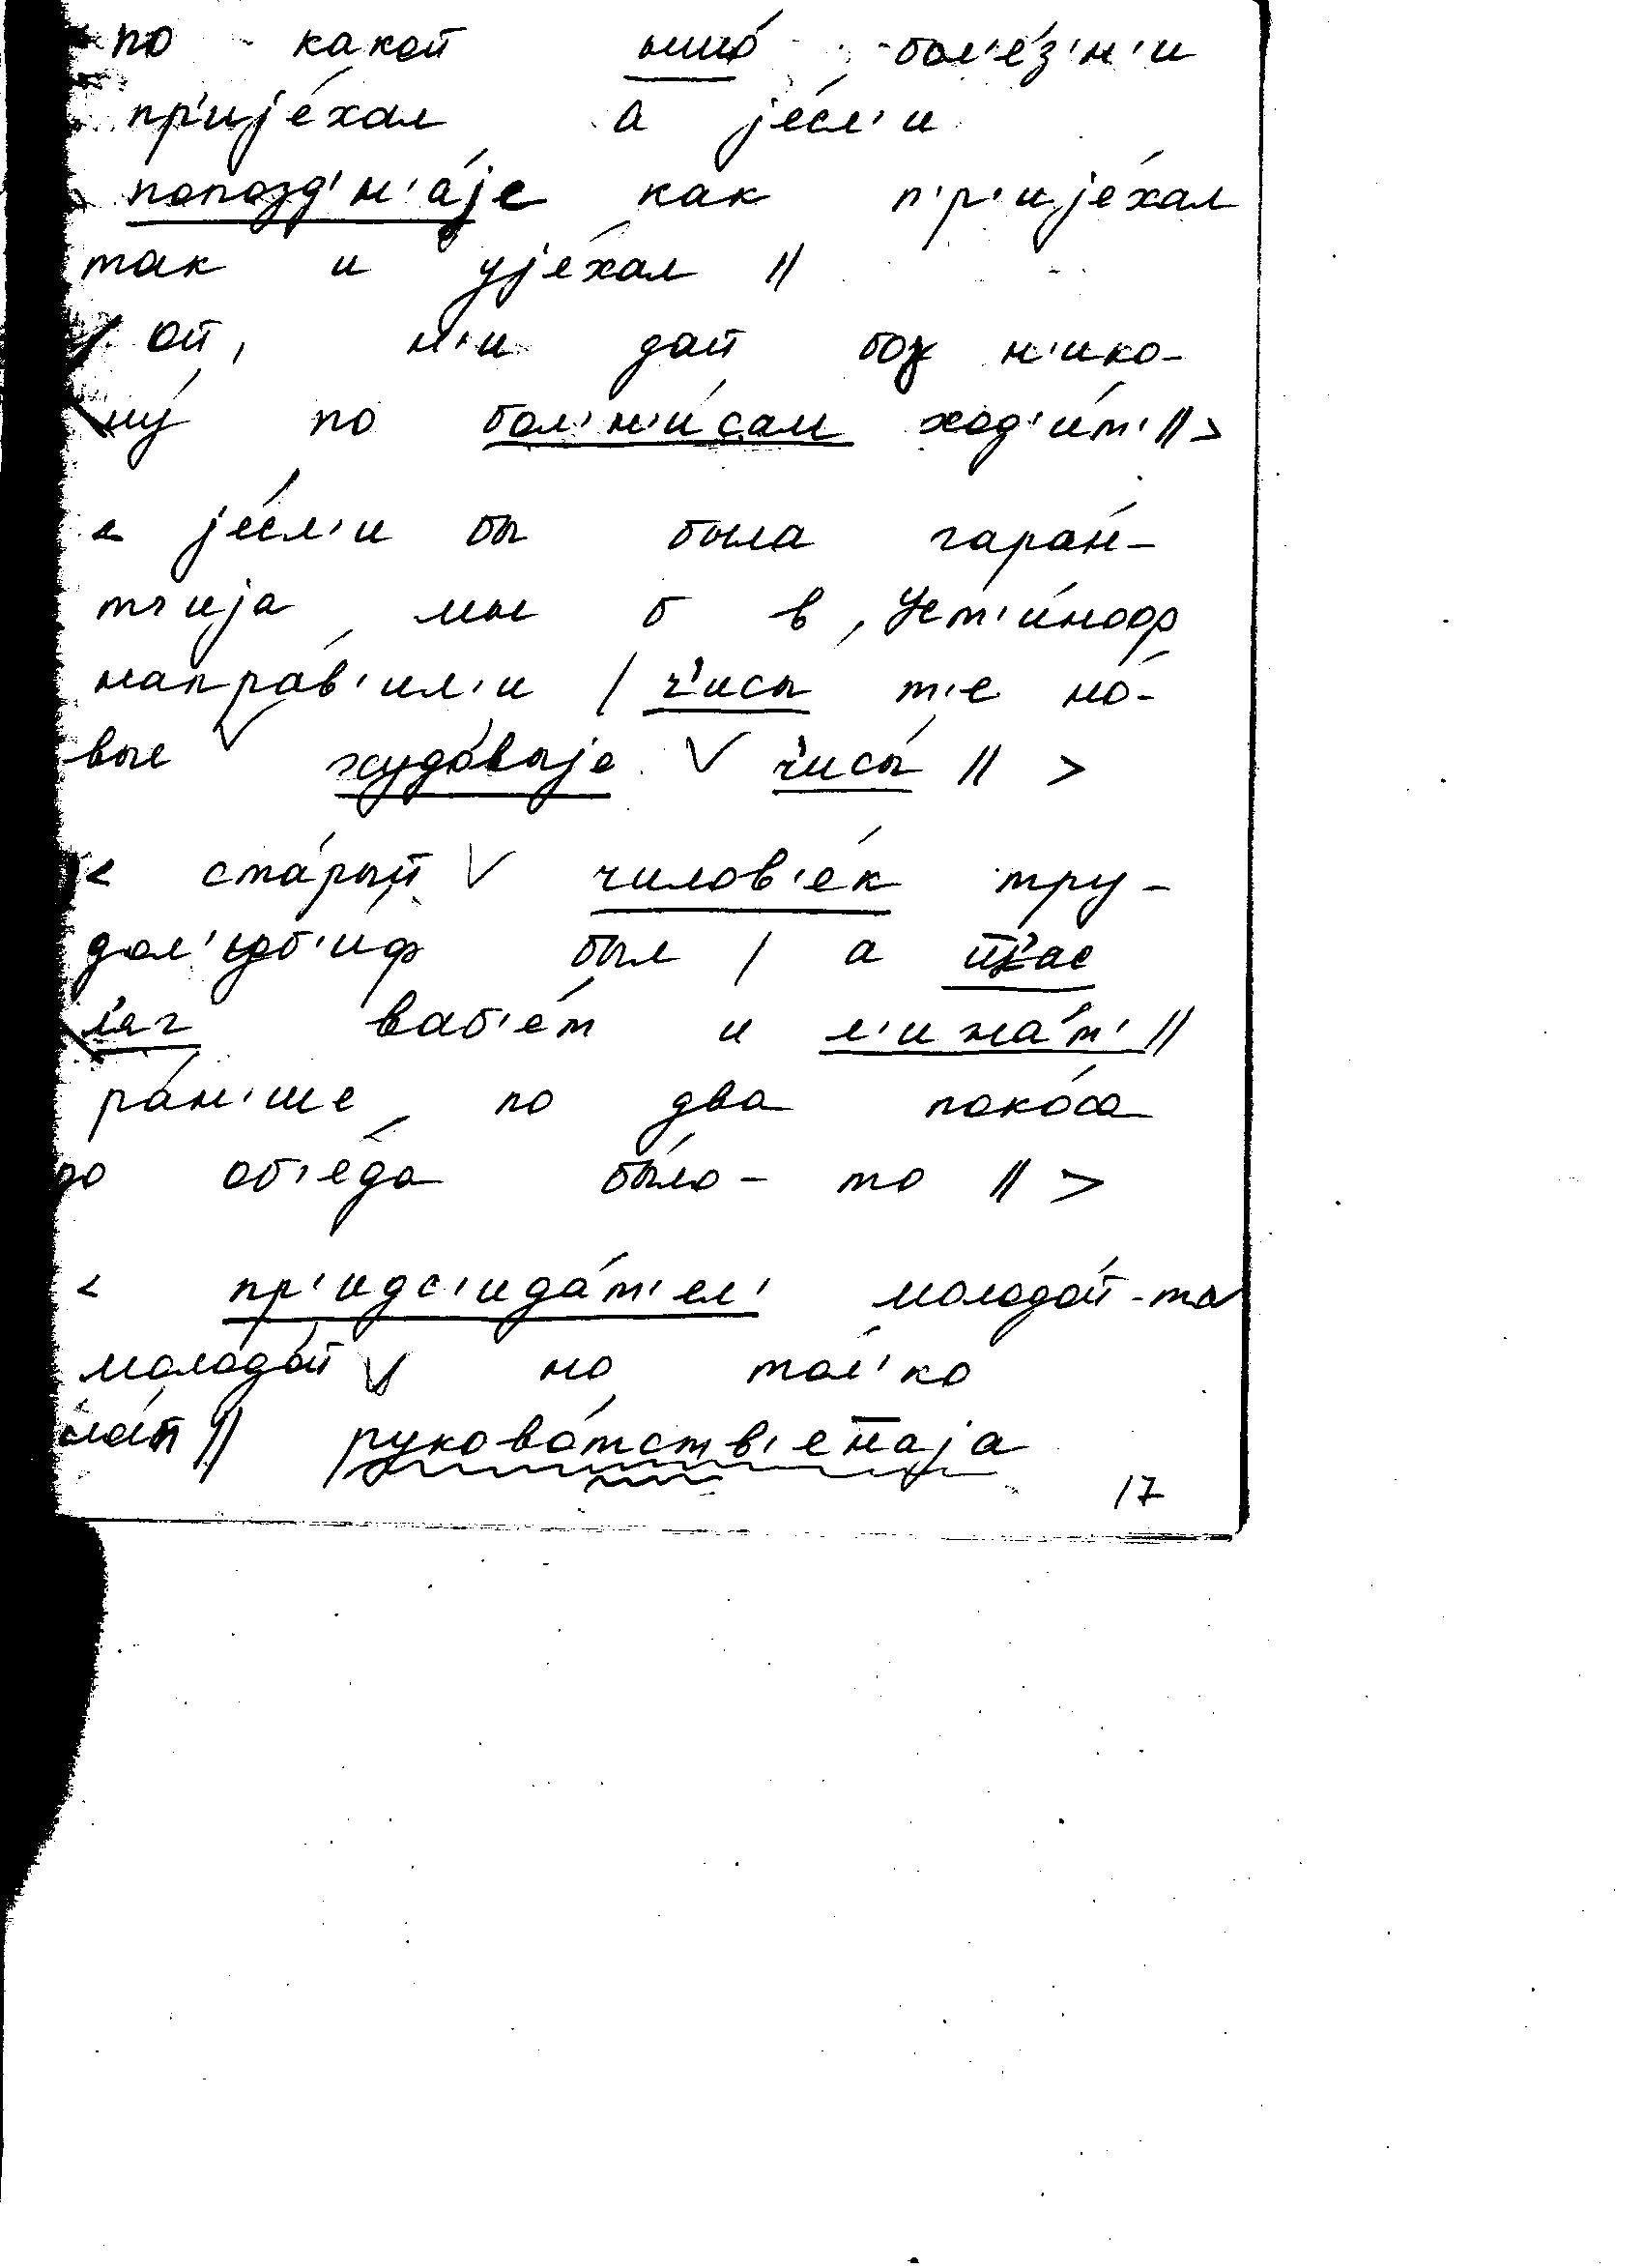 по какой ништо́ бол'е́з'н'и
пр'ије́хал а је́сл'и
попозд'н'а́је как п'р'ије́хал
так и ује́хал ||
ой, н'и дай бох н'ико-
му́ по бол'н'и́сам ход'и́т' || >
< је́сл'и бы была гара́н-
т'ија мы б в Уст'и́ноф
напра́в'ил'и / ч'исы т'е но́-
вые худо́выје ч'исы́ || >
< ста́рый чилов'е́к тру-
дол'уб'и́ф был / а
л'аг ваб'е́т и л'ижа́т' ||
ра́н'ше по два пако́са
до об'е́да бы́ло - то || >
< пр'идс'ида́т'ел' молодо́й - то
молодо́й но тол'ко
|| руково́тств'ен̄аја
17